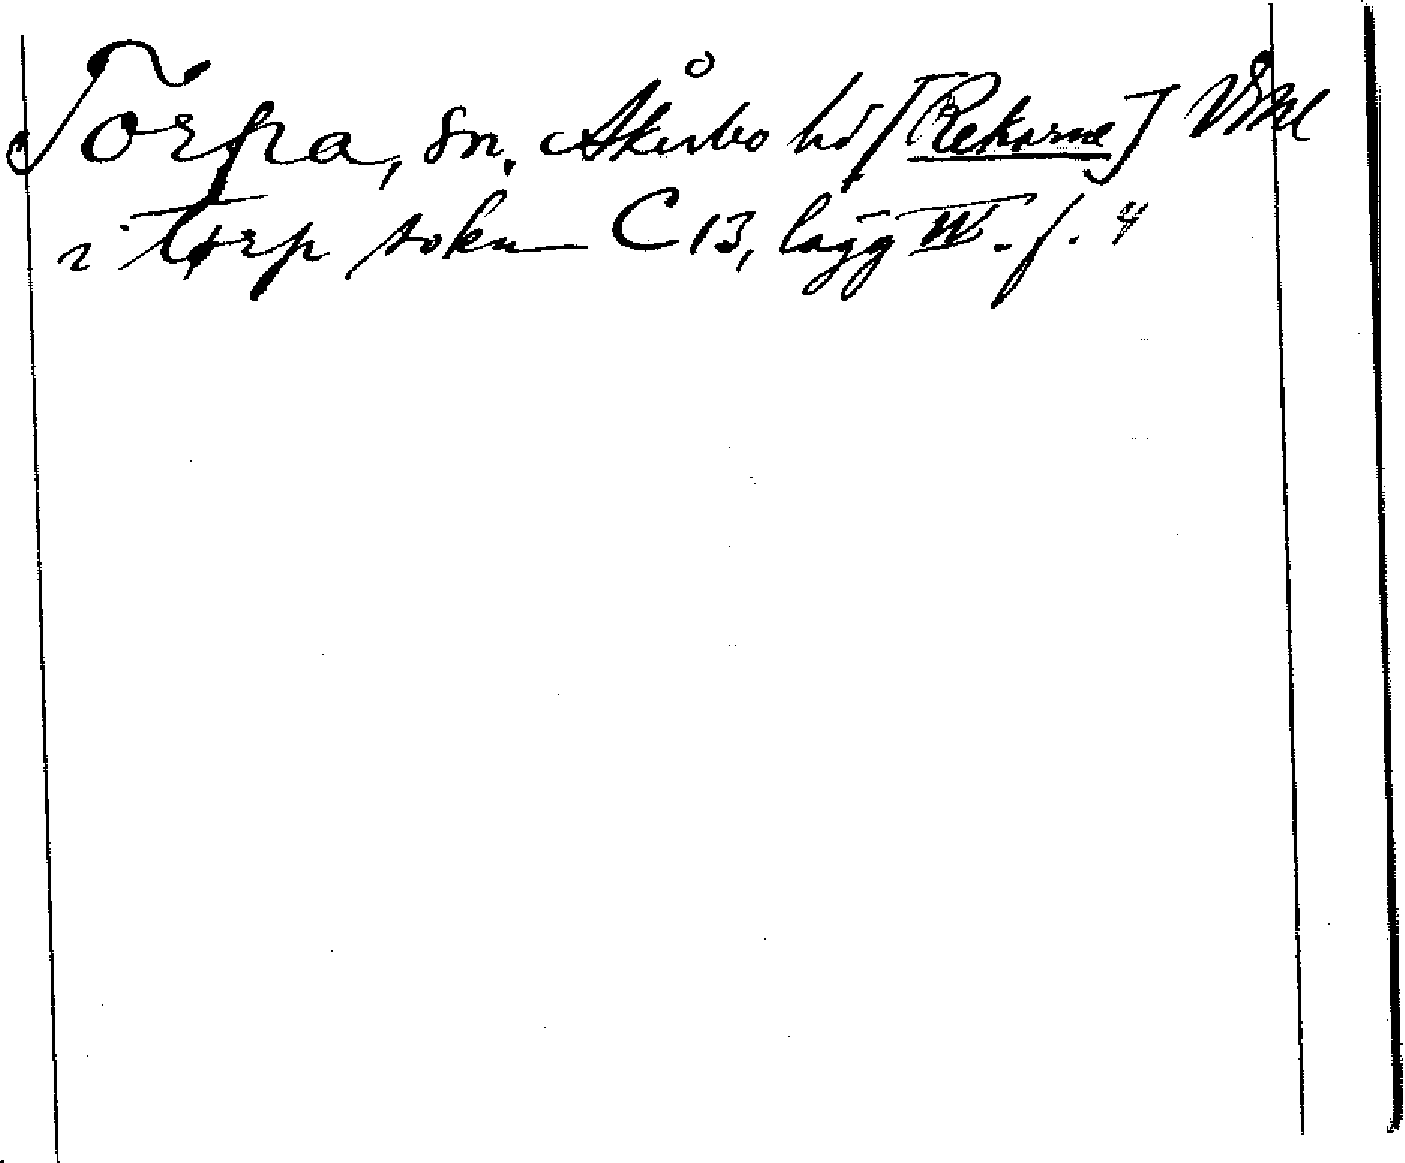 Torpa, sn. Åkerbo hd [Rekarne] Vstml
i torp sokn C 13, lägg IV. f. 4